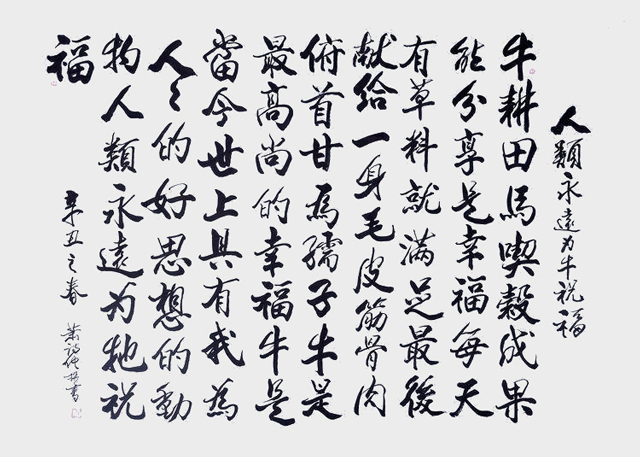 人類永遠为牛祝福
牛耕田馬喫穀成果
能分享是幸福每天
有草料就滿足最後
献给一身毛皮筋骨肉
俯首甘為孺子牛是
最高尚的幸福牛是
當今世上具有我為
人々的好思想的動
物人類永遠为牠祝
福
辛丑之春